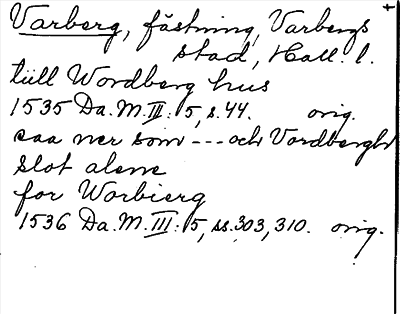 Varberg, fästning, Varbergs
stad, Hall. l.
tiill Wordberg hus
1535 Da.M.III:5, s.44. orig.
saa ner som --- och Vardbergh
slot alene
for Worbierg
1536 Da.M.III:5, ss.303, 310. orig.